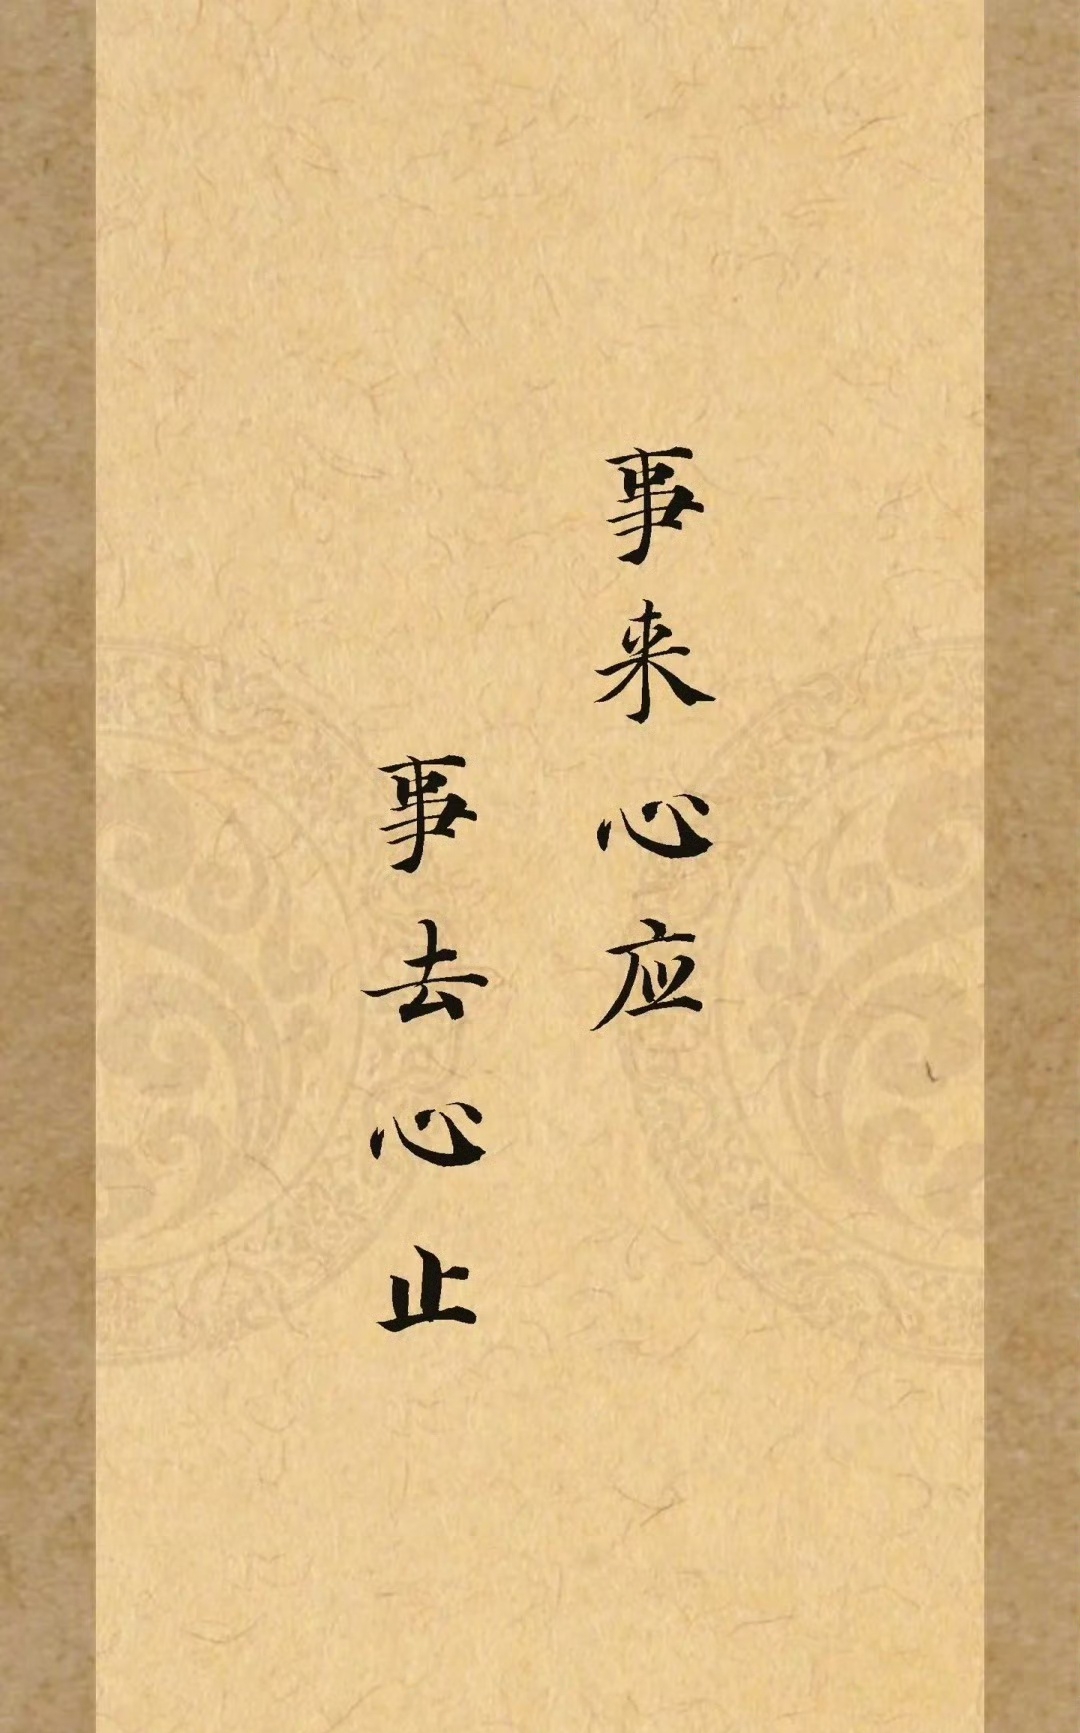 事来心应
事去心止